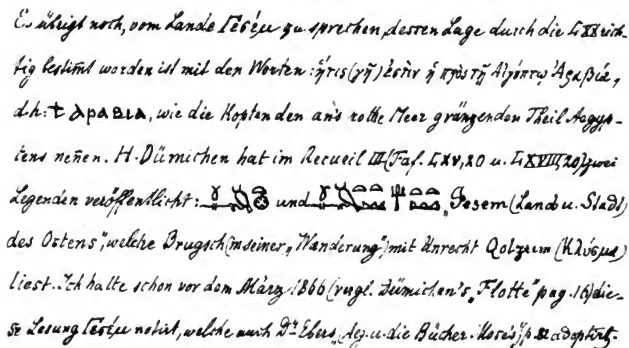 Es übrigt noch, vom Lande Γεσέμ zu sprechen, dessen Lage durch die LXX rich-
tig bestim̅t worden ist mit den Worten: ἥτις (γῆ) ἐστὶν ἡ πρὸς τῇ Αἰγύπτῳ Ἀραβία,
d.h: ϯ ⲁⲣⲁⲃⲓⲁ, wie die Kopten den an's rothe Meer gränzenden Theil Aegyp-
tens nen̅en. H. Dümichen hat im Recueil III (Taf. LXV, 20 u. LXVIII, 20) zwei
Legenden veröffentlicht: und „Gesem (Land u. Stadt)
des Ostens", welche Brugsch (in seiner „Wanderung") mit Unrecht Qolzum (Κλύσμα)
liest. Ich hatte schon vor dem März 1866 (vergl. Dümichen's „Flotte" pag. 16) die-
se Lesung Γεσέμ notirt, welche auch Dr Ebers „Aeg. u. die Bücher Mose's" p. adoptirt.